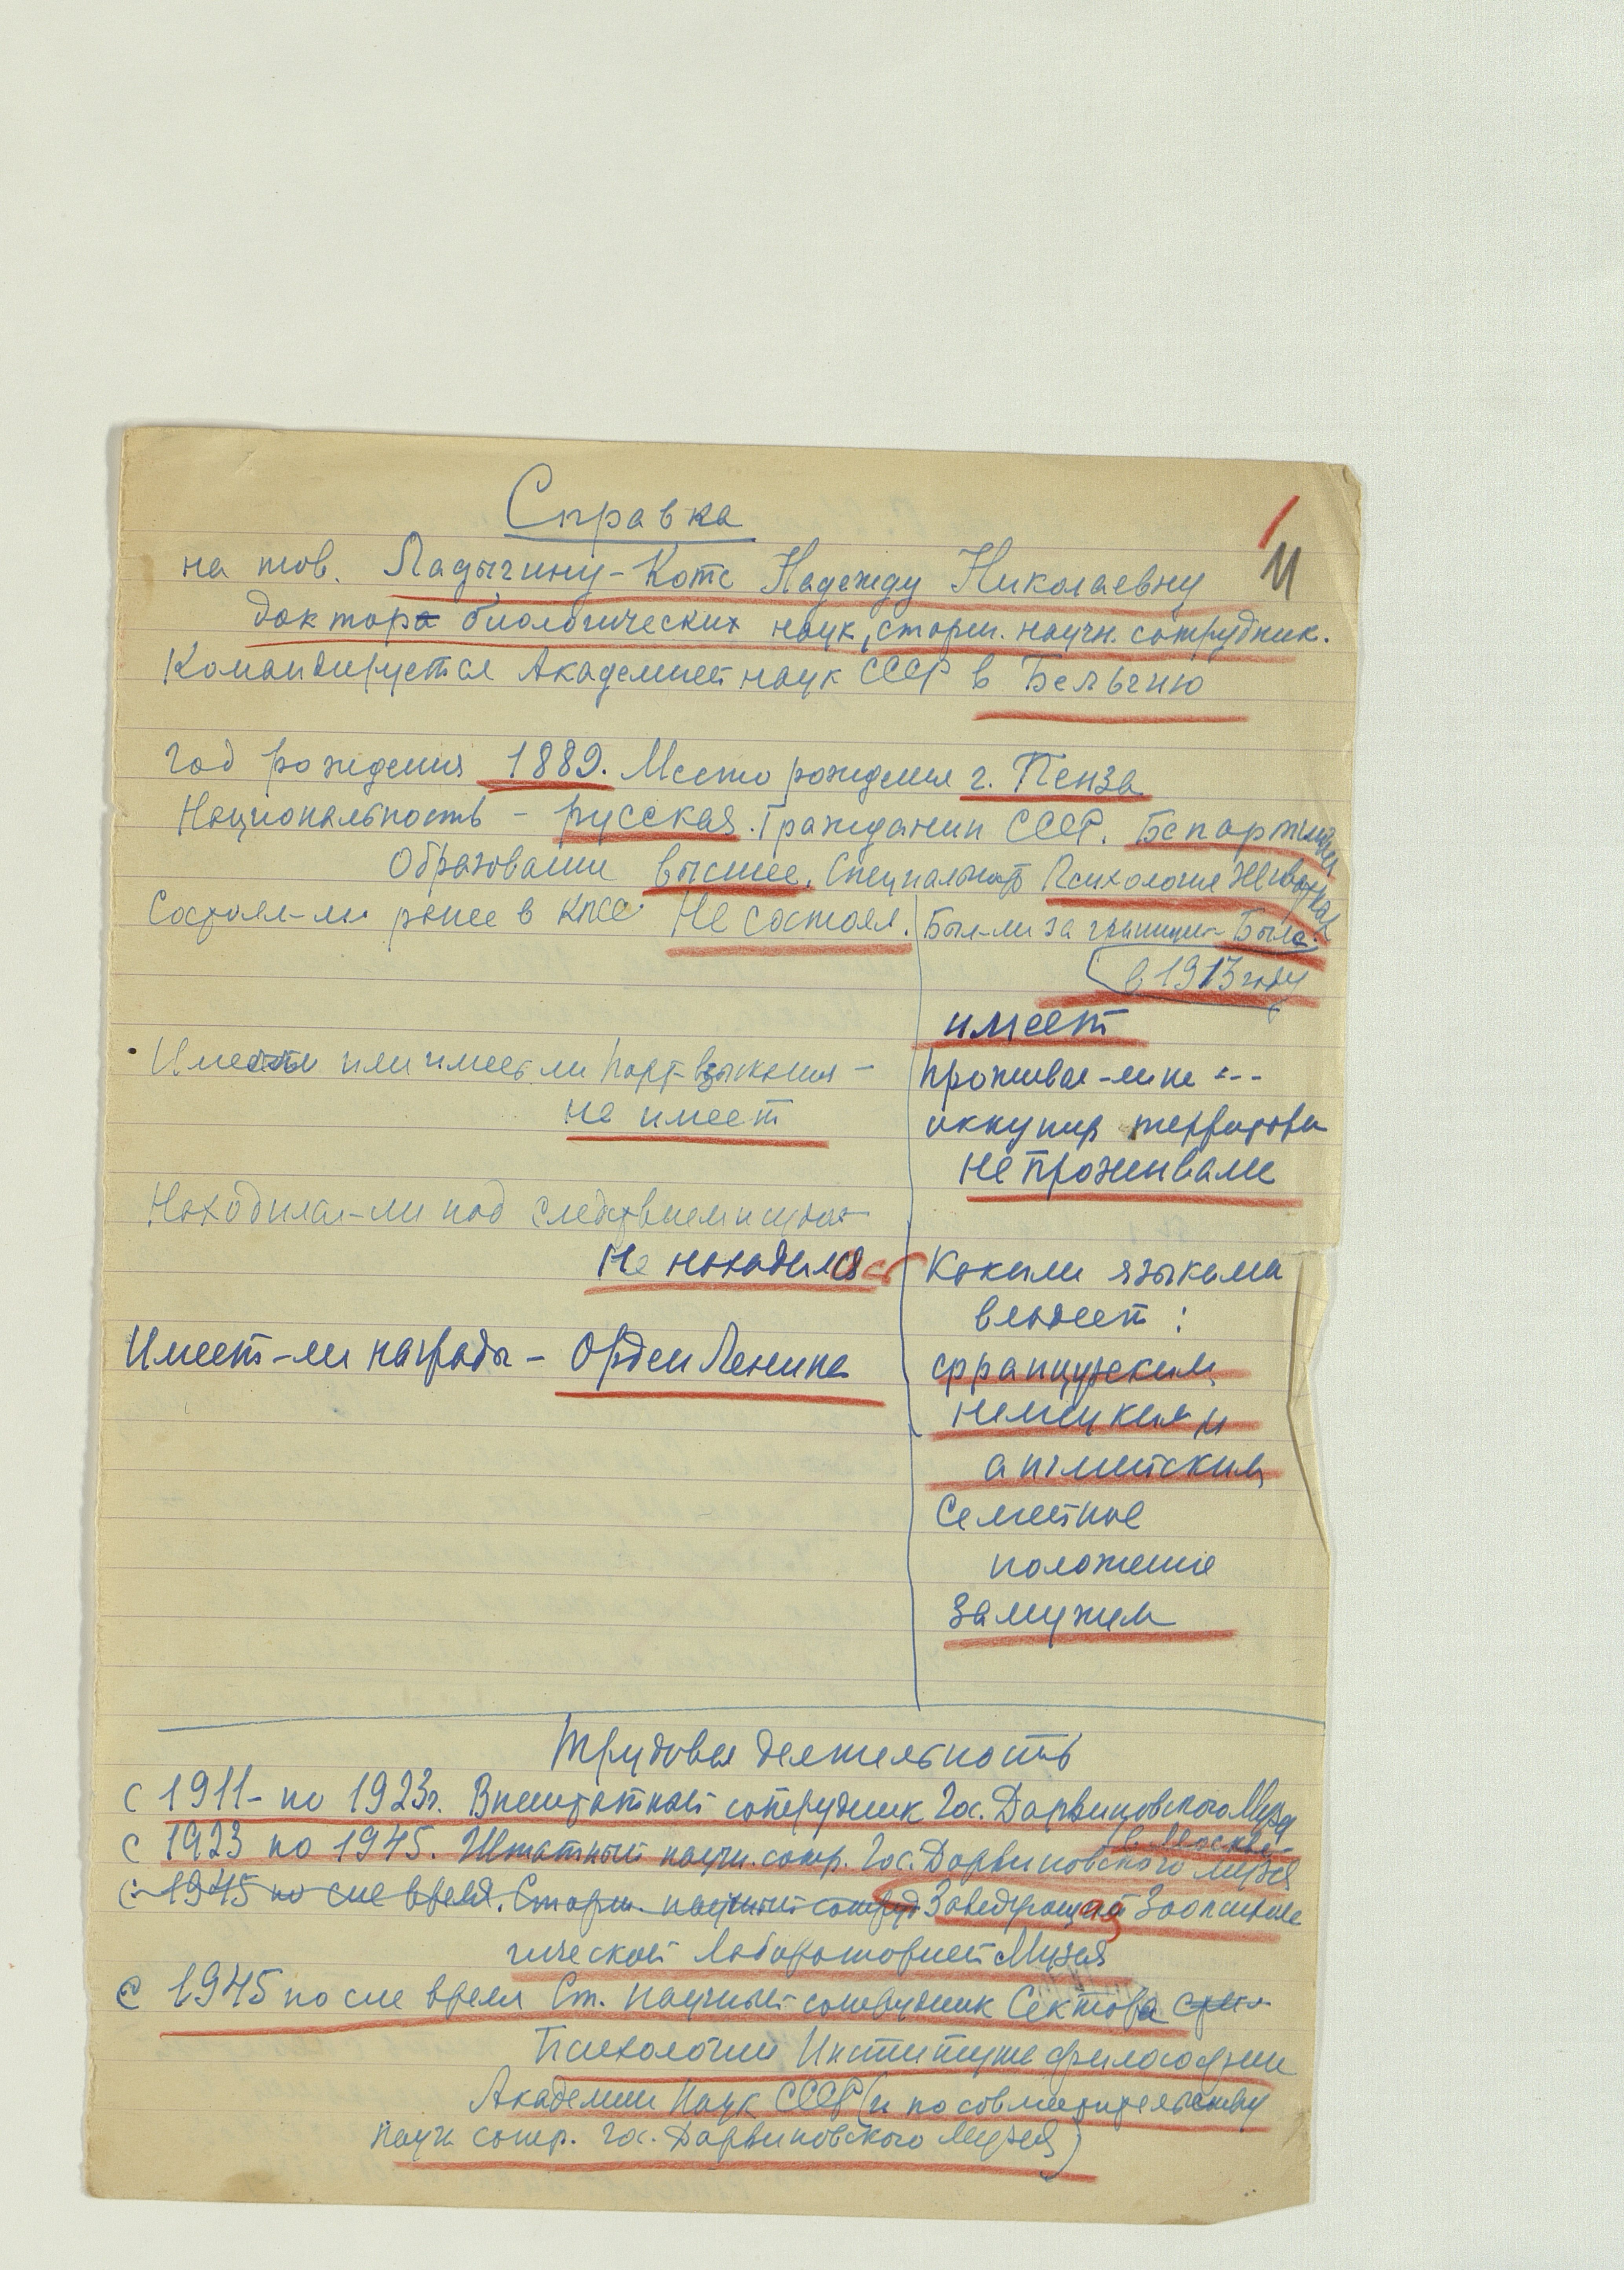 Справка
11
на тов. Ладыгину-Котс Надежду Николаевну
доктора биологических наук, старш. научн. сотрудник.
Командируется Академией наук СССР в Бельгию
Год рождения 1889. Место рождения г. Пенза
Национальность - русская. Гражданин СССР. Беспартийная
Образование высшее. Специальность Психология животных
Состоял-ли ранее в КПСС Не состоял.
Был-ли за границей Была.
в 1913 году
имеет
Имеет или имел ли парт-взыскания -
не имеет
Проживал-ли на ---
оккупир территории
не проживала
Находился-ли под следствием и судом
Не находилась
Имеет-ли награды - Орден Ленина
Какими языками
владеет :
французским,
немецким и
английским
Семейное
положение
Замужем
Трудовая деятельность
с 1911 - по 1923г. Внештатный сотрудник Гос. Дарвиновского Музея
в Москве
с 1923 по 1945. Штатный научн. сотр. Гос. Дарвиновского музея
с 1945 по сие время. Старш. научный сотруд Заведующая Зоопсихоло
гической Лабораторией Музея
с 1945 по сие время Ст. научный сотрудник Сектора
Психологии Института философии
Академии Наук СССР (и по совместительству
научн сотр. Гос. Дарвиновского Музея)